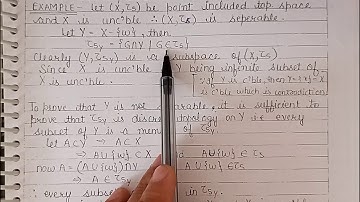 Example: Let (X, τs) be point included top space
and X is unc'ble ∴ (X, τs) is seperable.
Let Y = X-{w}, then
τsy = {G∩Y | G∈τs}
Clearly (Y, τsy) is a subspace of (X, τs)
Since X is unc'ble Y being infinite subset of
X is unc'ble
Y is c'ble, then Y∪{w} = X
is c'ble, which is contradiction
To prove that is not separable, it is sufficient to
prove that τsy is discrete topology on Y i.e every
subset of Y is a member of τsy.
Let A⊂Y ⇒ A⊂X
⇒ A∪{w} ⊂ X and A∪{w} ∈ τs
now A = (A∪{w})∩Y A∪{w} ∈τs
⇒ A ∈ τsy
∴ every subset in τsy.